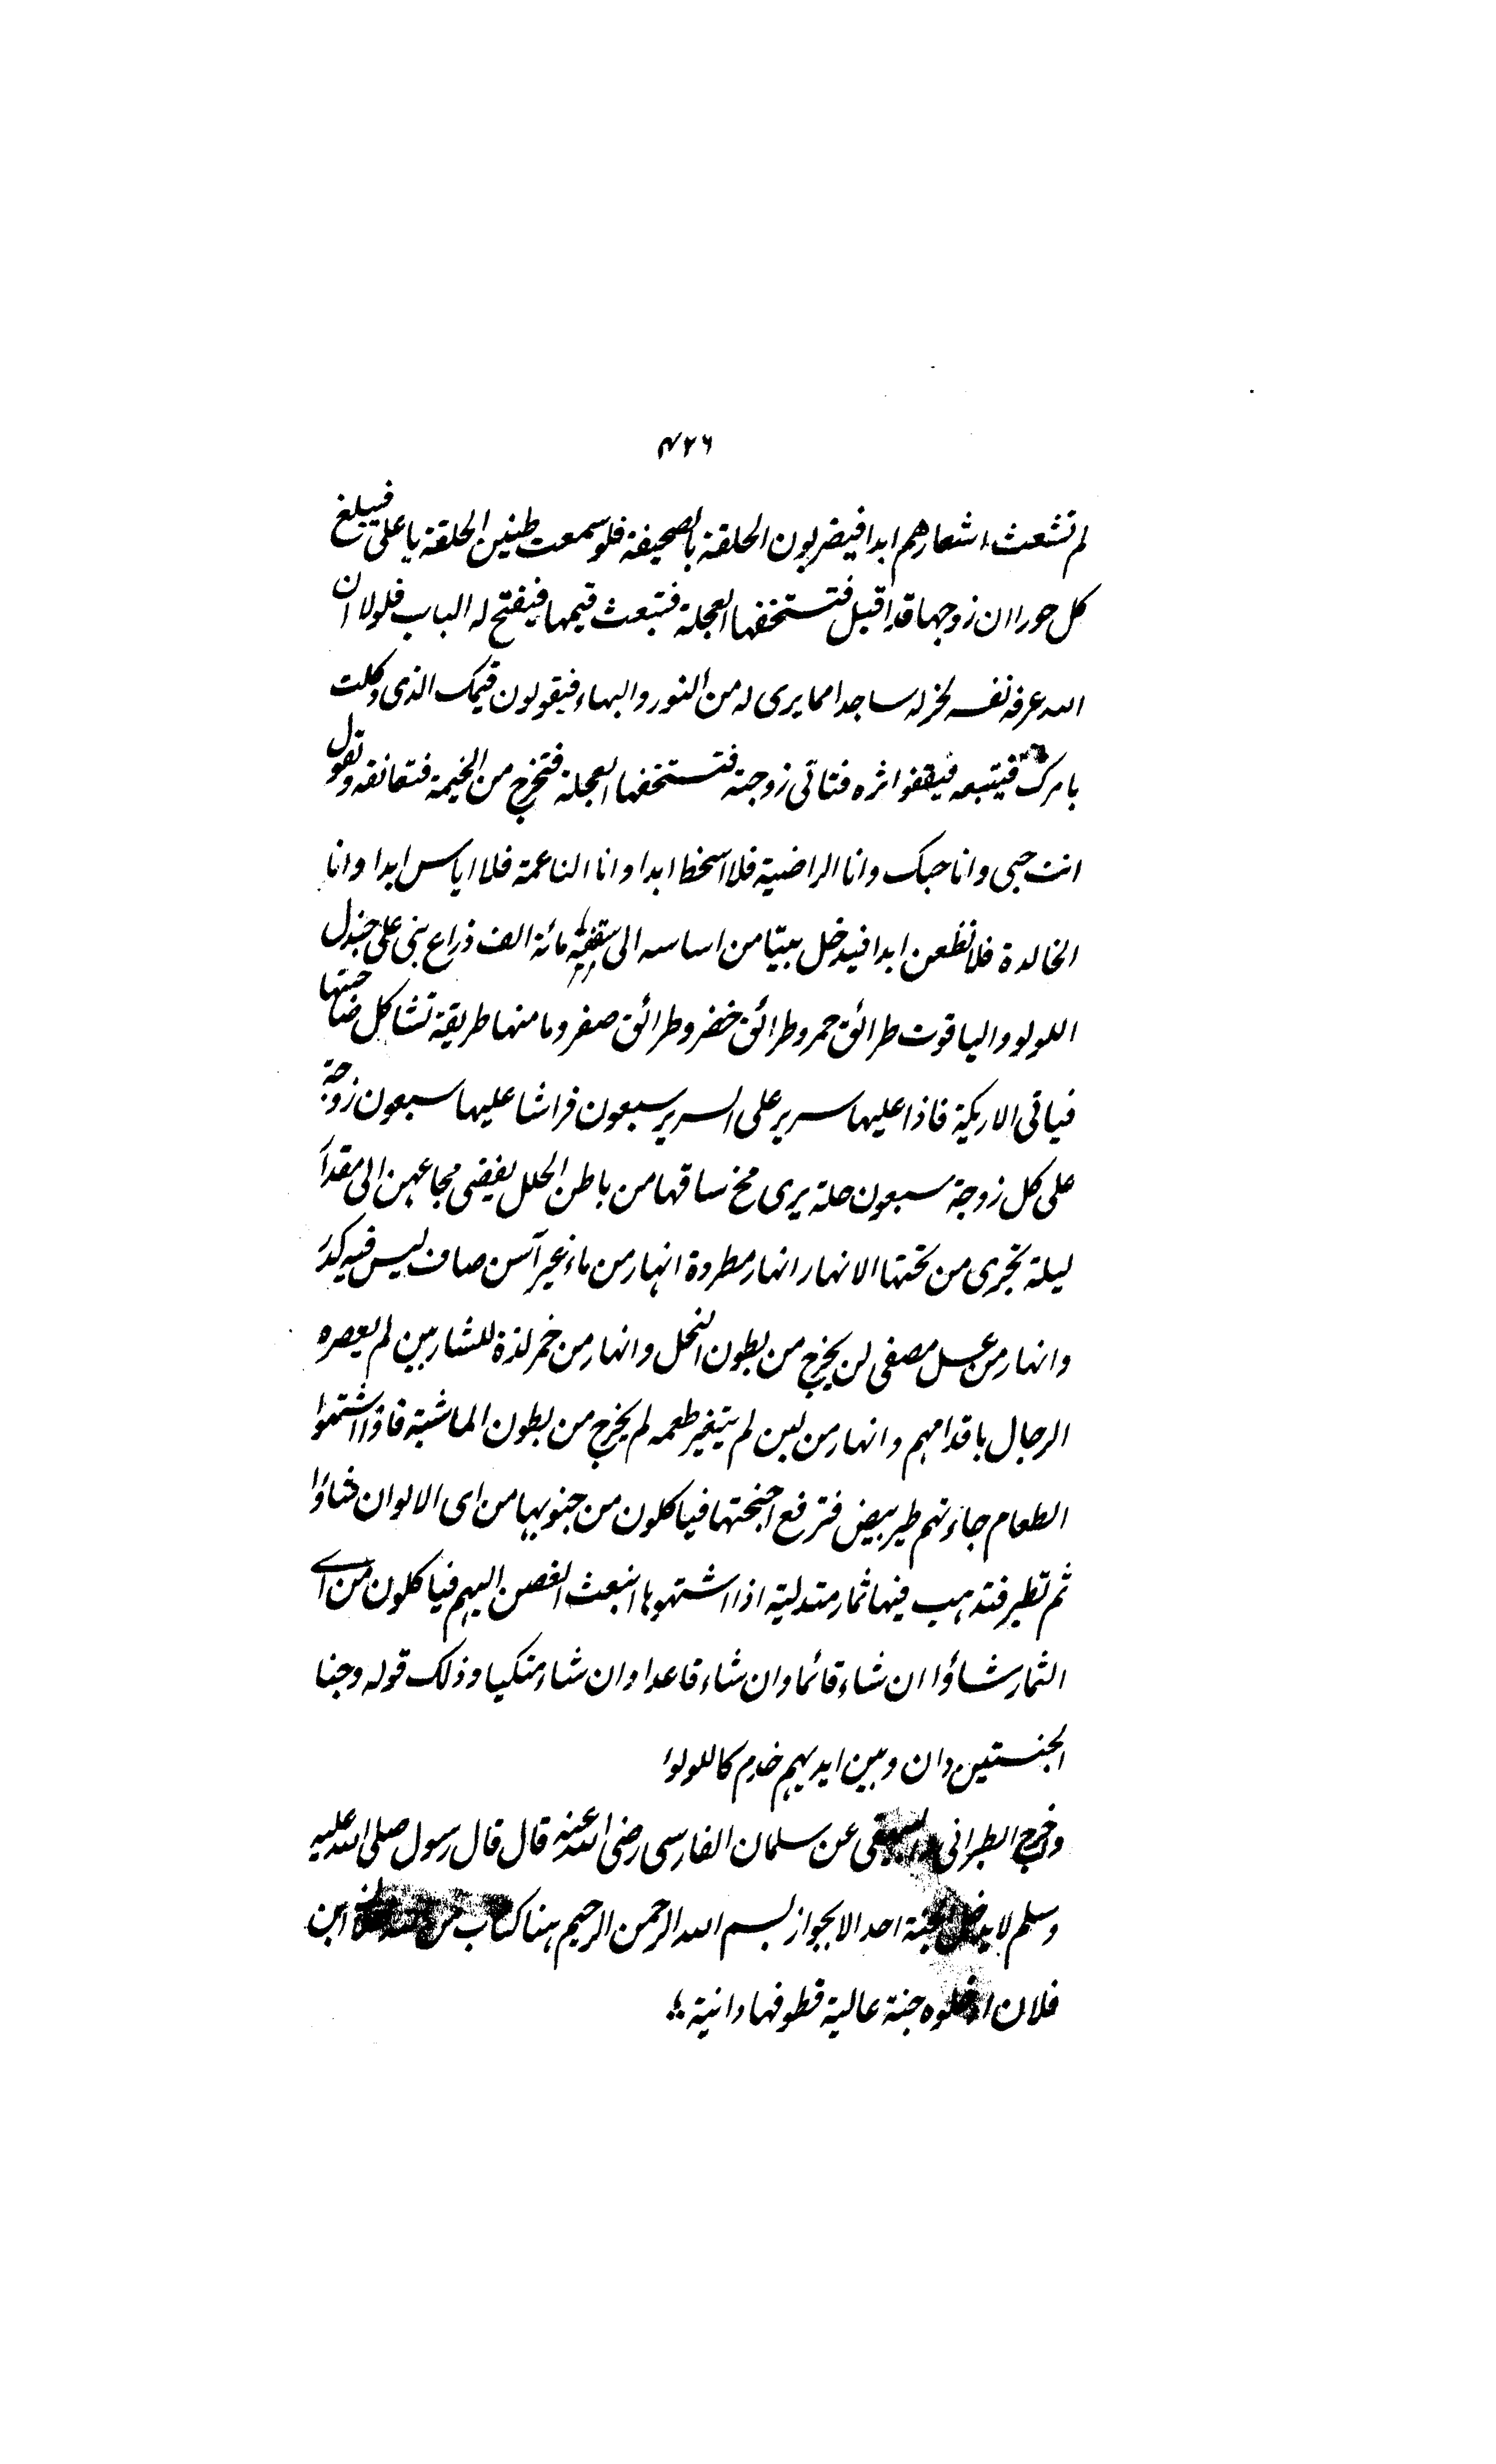 ۴۲۶
لم تشعث اشعارهم ابدا فيضربون الحلقة بالصحيفة فلو سمعت طنين الحلقة يا على فيبلغ
كل حوراان زوجها قد اقبل فتستخفها العجلة فتبعث قيمها فيفتح له الباب فلولا ان
الله عرفه نفسه لخر له ساجدا مما يرى له من النور والبهاء فيقولون قيمك الذى وكلت
بامرك فيتبعه فيقفوا ثره فتاتى زوجته فتستخفها العجلة فتخرج من الخيمة فتعانقه وتقول
انت حبى وانا حبك وانا الراضية فلا اسخط ابدا وانا الناعمة فلا اياس ابدا وانا
الخالدة فلا نظعن ابدا فيدخل بيتا من اساسه الى سقفيه مائة الف ذراع بنى على جندل
اللولو والياقوت طرائق حمر وطرائق خضر وطرائق صفر وما منها طريقة تشاكل صاحبتها
فياتى الاريكة فاذا عليها سرير على السرير سبعون فراشا عليها سبعون زوجة
على كل زوجة سبعون حلة يرى مخ ساقها من باطن الحلل يفيضى مجاعهن الى مقدار
ليلة تجرى من تحتها الانهار انهار مطردة انهار من ماء غير آسن صاف ليس فيه كدر
وانهار من عسل مصفى لن يخرج من بطون النحل وانهار من خمر لذة للشاربين لم يعصره
الرجال باقدامهم وانهار من لبن لم يتغير طعمه لم يخرج من بطون الماشية فاذا اشتهوا
الطعام جاءتهم طير بيض فترفع اجنحتها فياكلون من جنوبها من اى الالوان شاؤا
ثم تطير فتذهب فيها ثمار متدلية اذا اشتهوها انبعث الغصن اليهم فياكلون من اى
الثمار شاؤا ان شاء قائما وان شاء قاعدا وان شاء متكيا وذلك قوله وجنا
الجنستين دان وبين ايديهم خدم كاللولوء
وخرج الطبرانى عن سلمان الفارسى رضى الله عنه قال قال رسول صلى الله عليه
وسلم لا يدخل الجنة احد الا بجواز بسم الله الرحمن الرحيم هنا كتاب من ابن
فلان ادخلوه جنة عالية قطوفها دانية